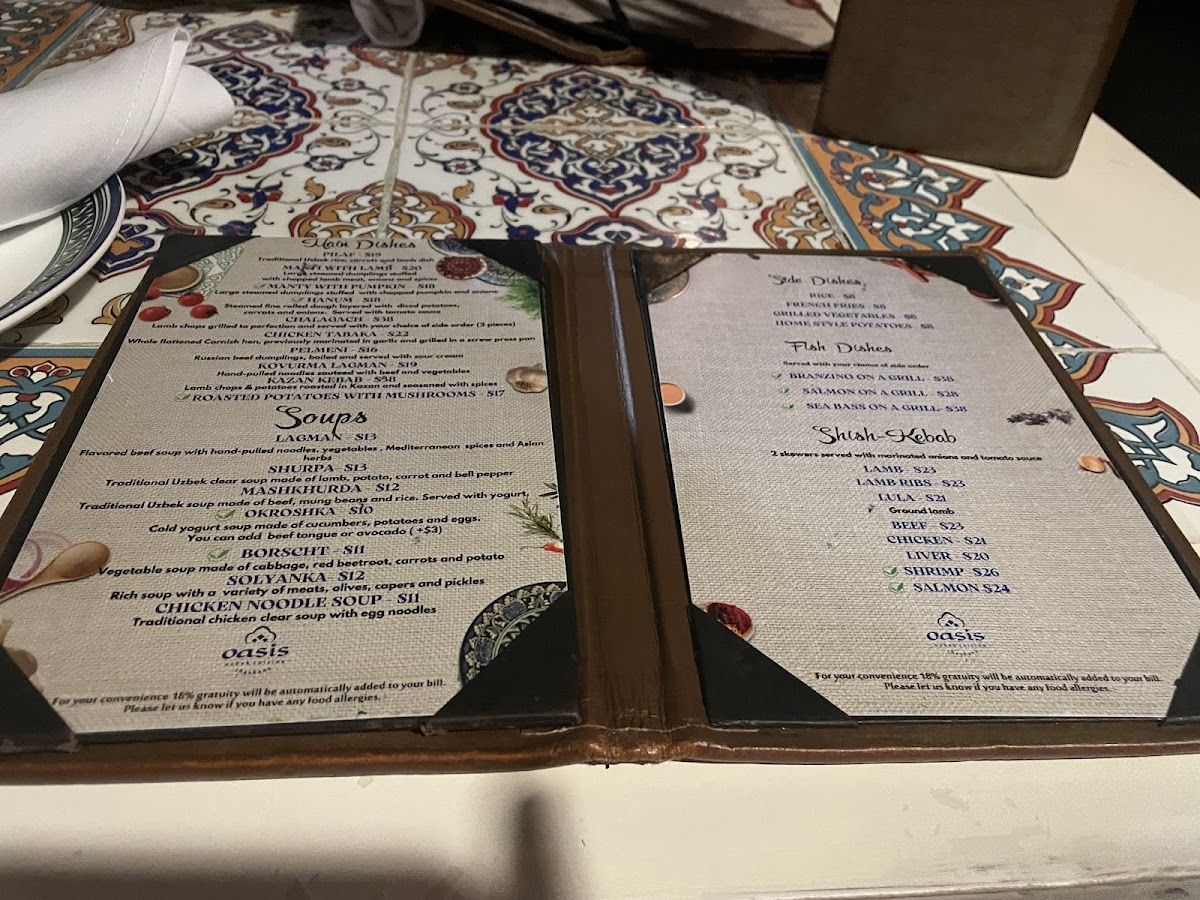 Main Dishes
PILAF - $19
Traditional Uzbek rice, carrots and lamb dish
MANTI WITH LAMB - $20
Large steamed dumplings stuffed
with chopped lamb meat, onions and spices
MANTY WITH PUMPKIN - $18
Large steamed dumplings stuffed with chopped pumpkin and onions
HANUM - $18
Steamed fine rolled dough layered with diced potatoes,
carrots and onions. Served with tomato sauce
CHALAGACH - $38
Lamb chops grilled to perfection and served with your choise of side order (3 pieces)
CHICKEN TABAKA - $22
Whole flattened Cornish hen, previously marinated in garlic and grilled in a screw press pan
PELMENI - $16
Russian beef dumplings, boiled and served with sour cream
KOVURMA LAGMAN - $19
Hand-pulled noodles sauteed with beef and vegetables
KAZAN KEBAB - $38
Lamb chops & potatoes roasted in Kazan and seasoned with spices
ROASTED POTATOES WITH MUSHROOMS - $17
Soups
LAGMAN - $13
Flavored beef soup with hand-pulled noodles, vegetables , Mediterranean spices and Asian
herbs
SHURPA - $13
Traditional Uzbek clear soup made of lamb, potato, carrot and bell pepper
MASHKHURDA - $12
Traditional Uzbek soup made of beef, mung beans and rice. Served with yogurt,
OKROSHKA - $10
Cold yogurt soup made of cucumbers, potatoes and eggs.
You can add beef tongue or avocado ( +$3)
BORSCHT - $11
Vegetable soup made of cabbage, red beetroot, carrots and potato
SOLYANKA $12
Rich soup with a variety of meats, olives, capers and pickles
CHICKEN NOODLE SOUP - $11
Traditional chicken clear soup with egg noodles
oasis
UZBEK CUISINE
For your convenience 18% gratuity will be automatically added to your bill.
Please let us know if you have any food allergies.
Side Dishes
RICE - $8
FRENCH FRIES - $8
GRILLED VEGETABLES - $8
HOME STYLE POTATOES - $8
Fish Dishes
Served with your choice of side order
BRANZINO ON A GRILL - $38
SALMON ON A GRILL - $28
SEA BASS ON A GRILL - $38
Shish-Kebab
2 skewers served with marinated onions and tomato sauce
LAMB - $23
LAMB RIBS - $23
LULA - $21
Ground lamb
BEEF - $23
CHICKEN - $21
LIVER - $20
SHRIMP - $26
SALMON $24
oasis
UZBEK CUISINE
For your convenience 18% gratuity will be automatically added to your bill.
Please let us know if you have any food allergies.